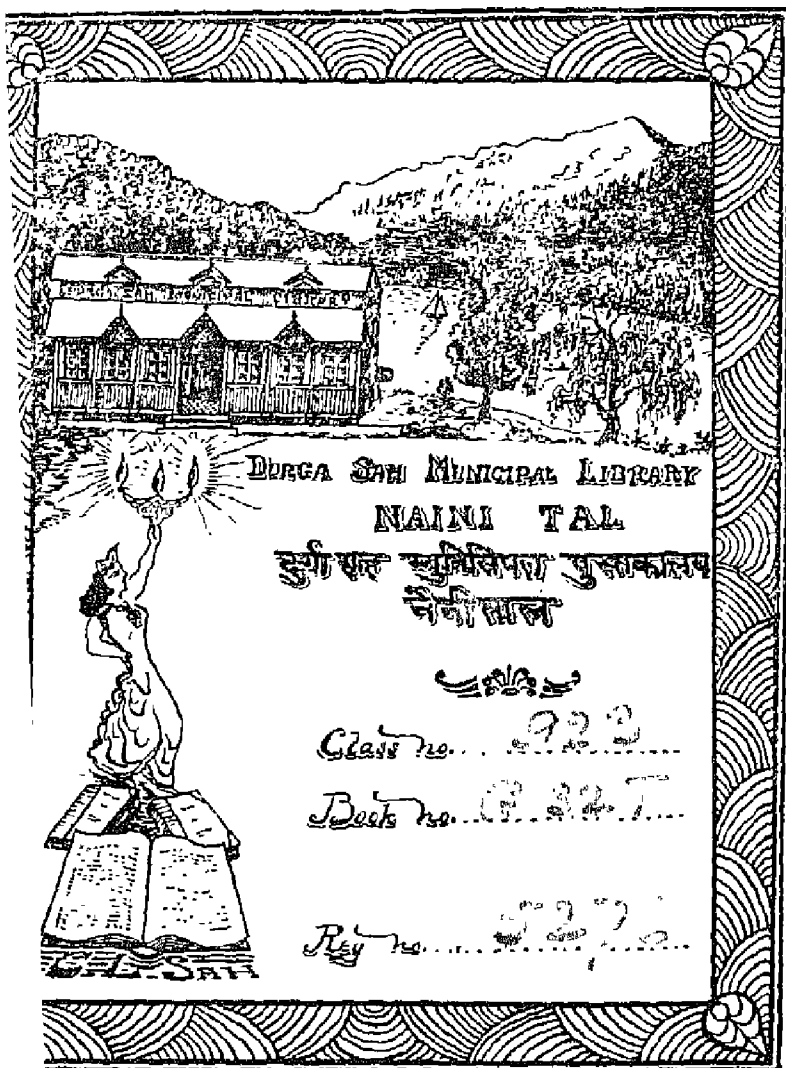 DURGA SAH MUNICIPAL LIBRARY
DURGA SAH MUNICIPAL LIBRARY
NAINI TAL
दुर्गा साह म्युनिसिपल पुस्तकालय
नैनीताल
Class no. 923
Book no. G 32 T
Reg no.
C.L. SAH